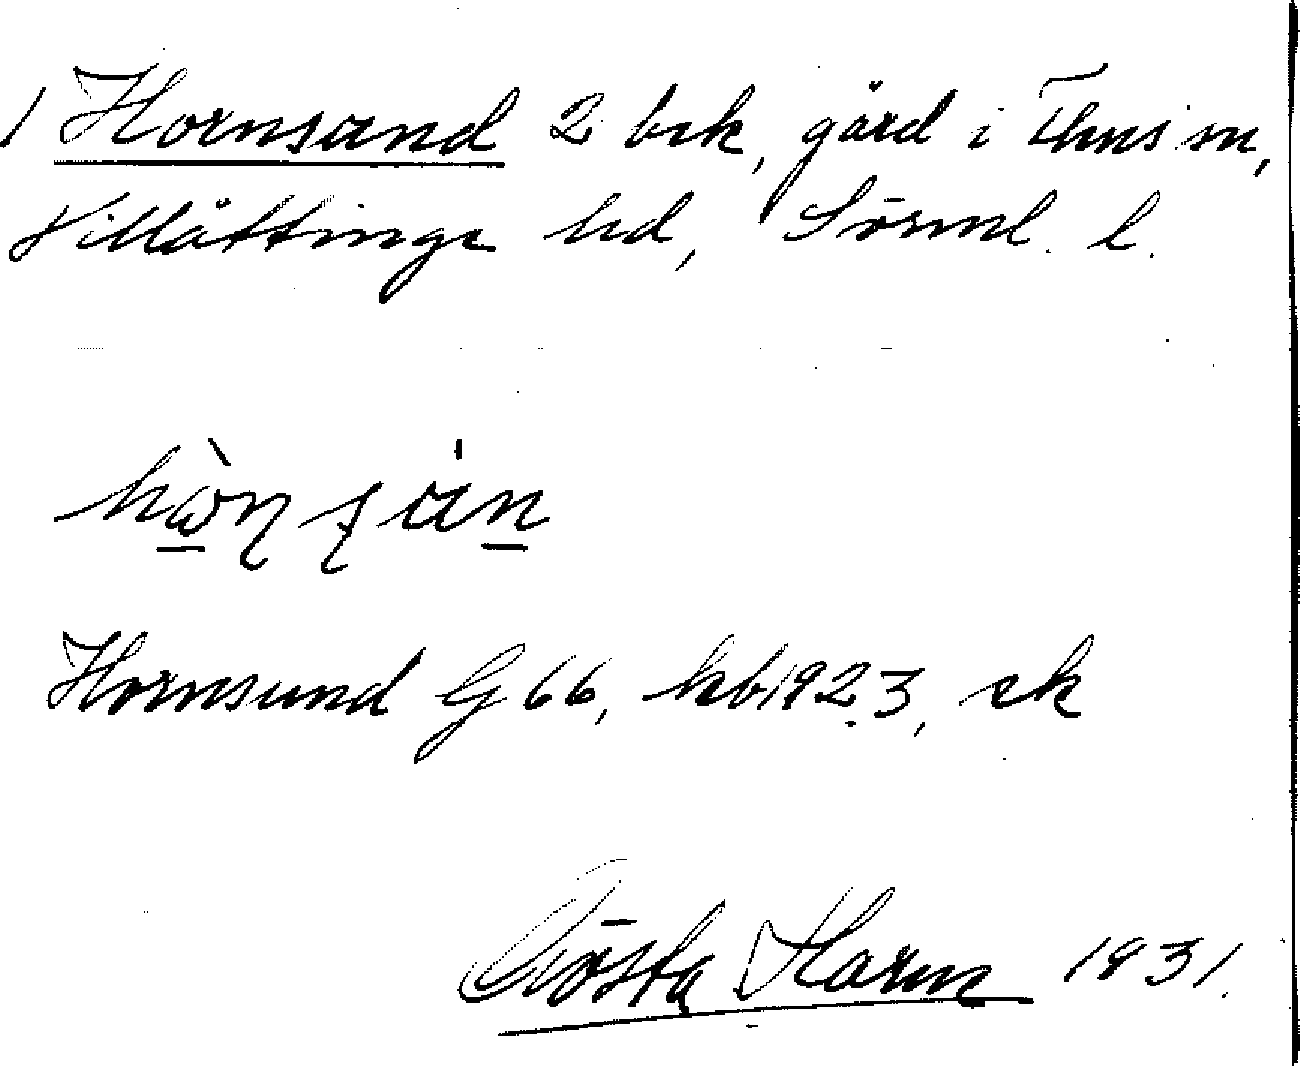 1 Hornsund 2 brk, gård i Flens sn,
Villåttinge hd, Sörml. l.
Hornsund G 66, kb 1923, ek
Gösta Harm 1931.